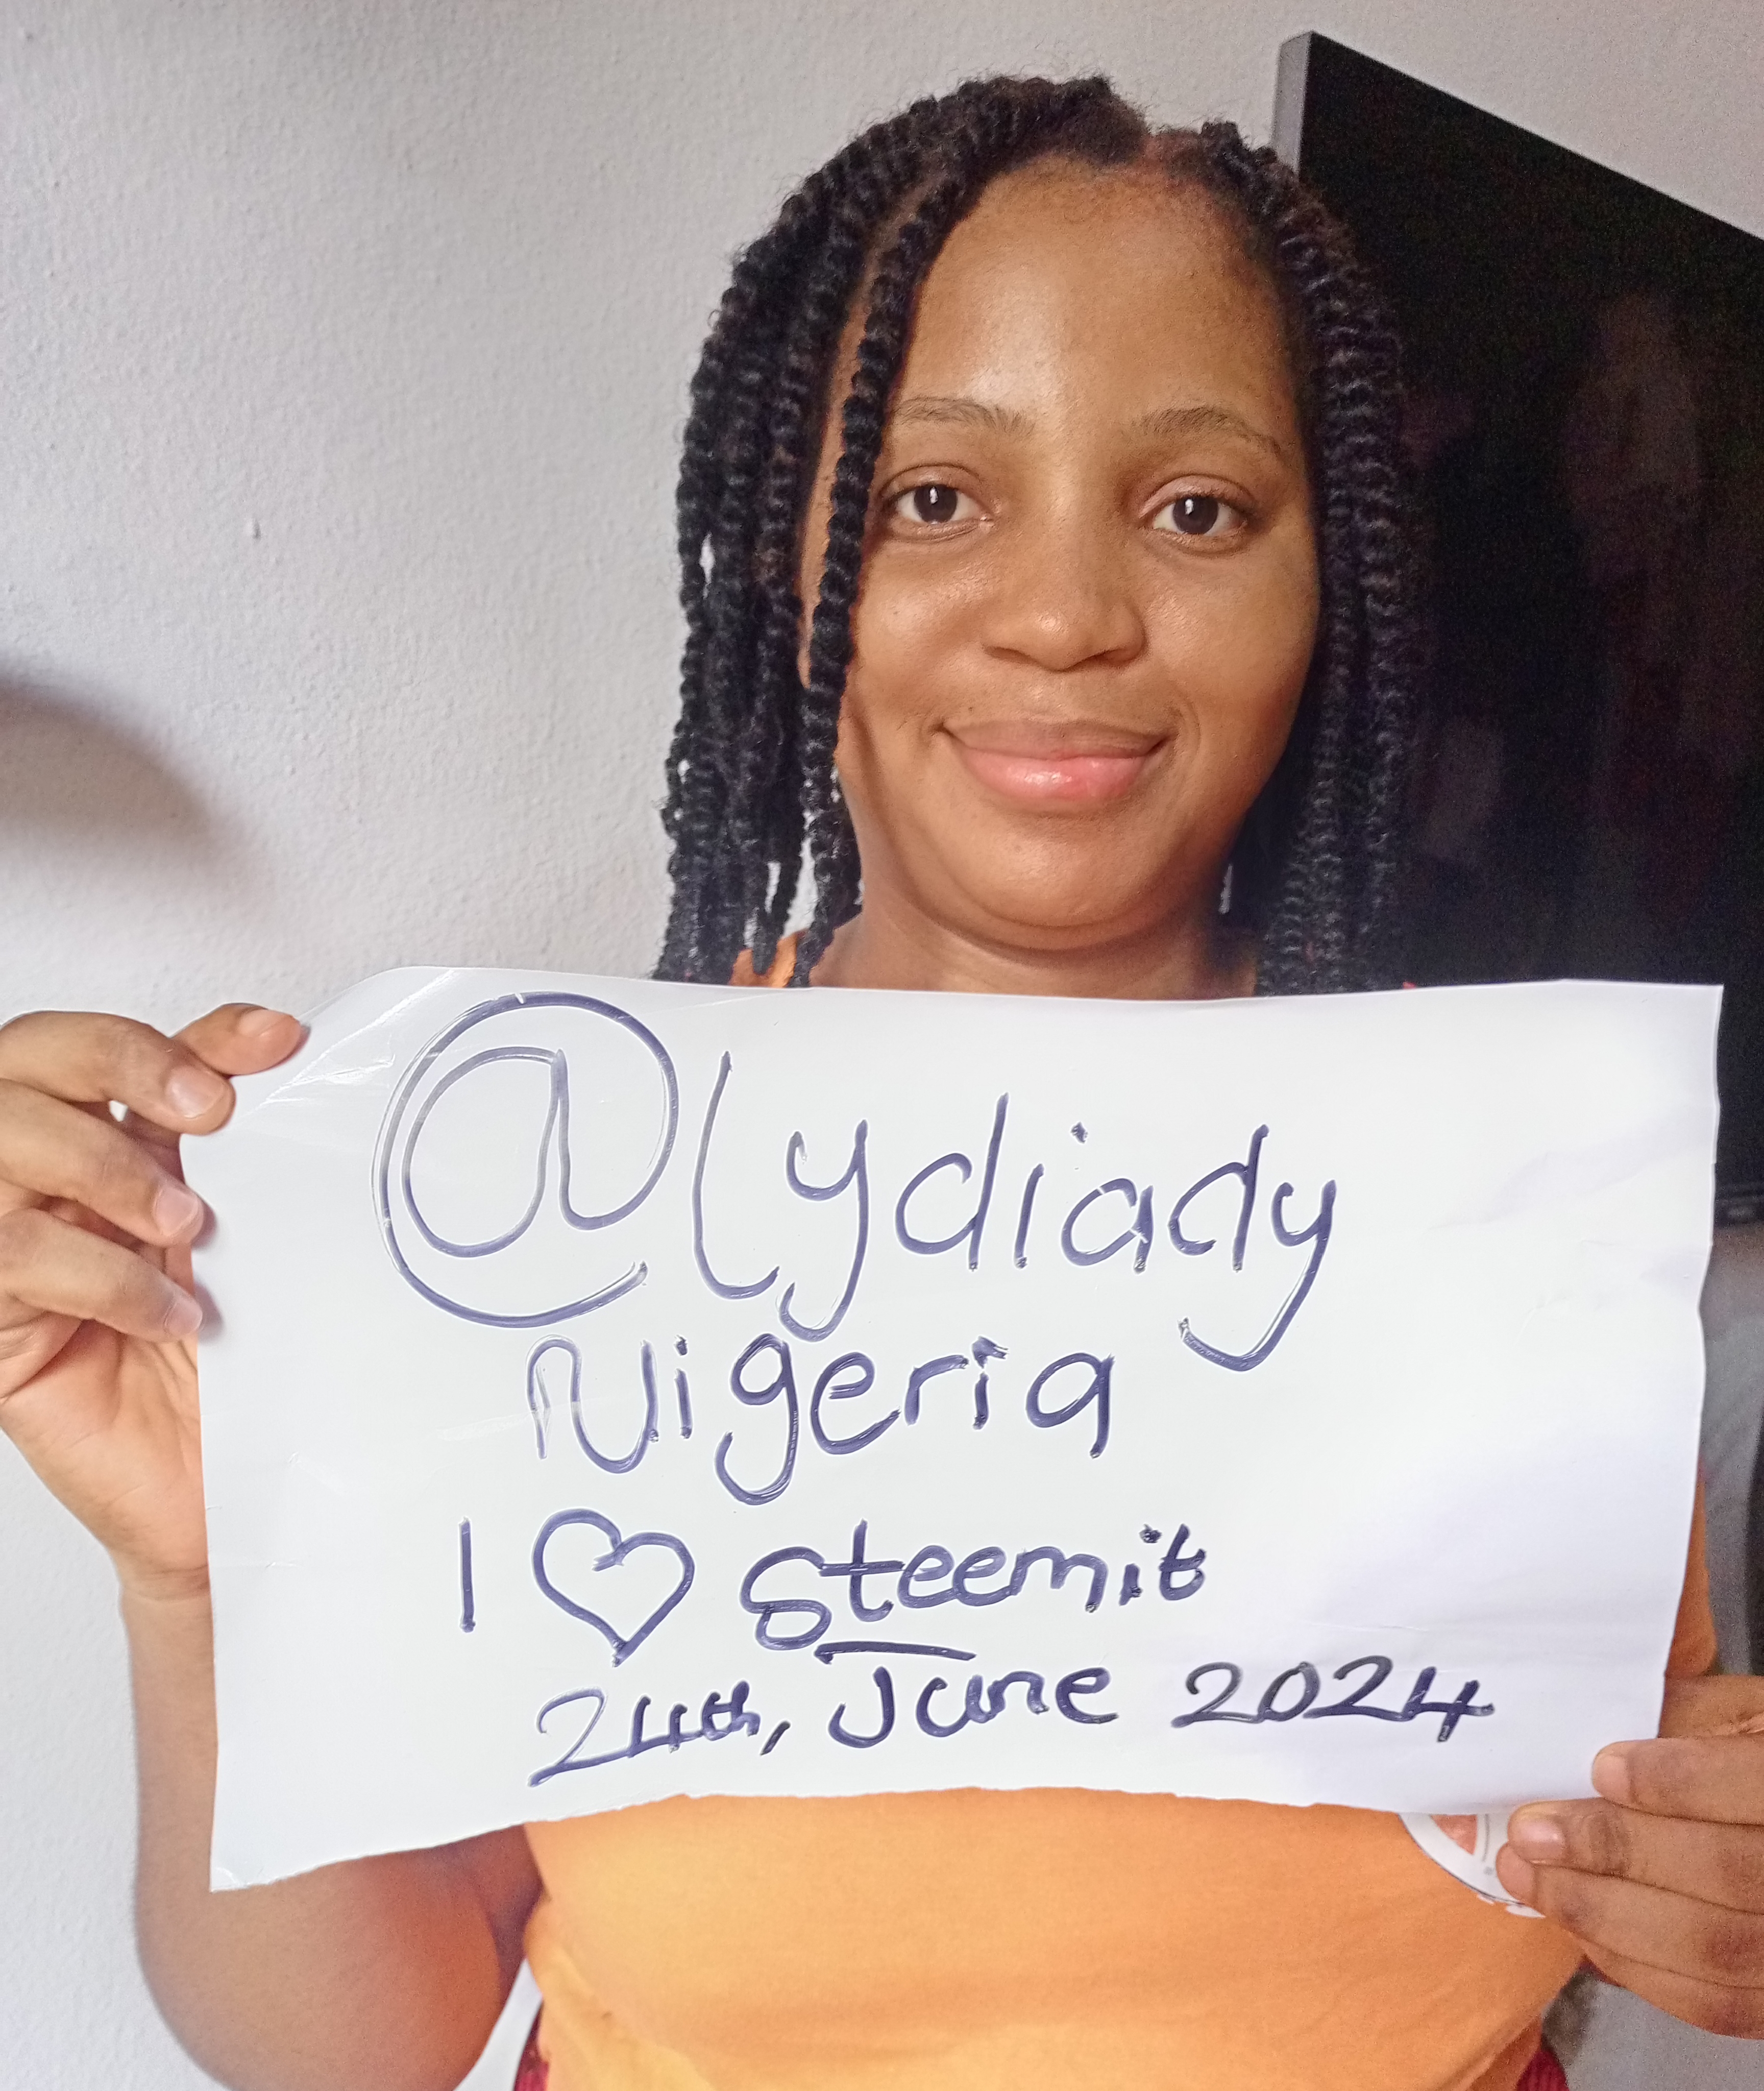 @lydiady
Nigeria
I ♡ steemit
24th, June 2024